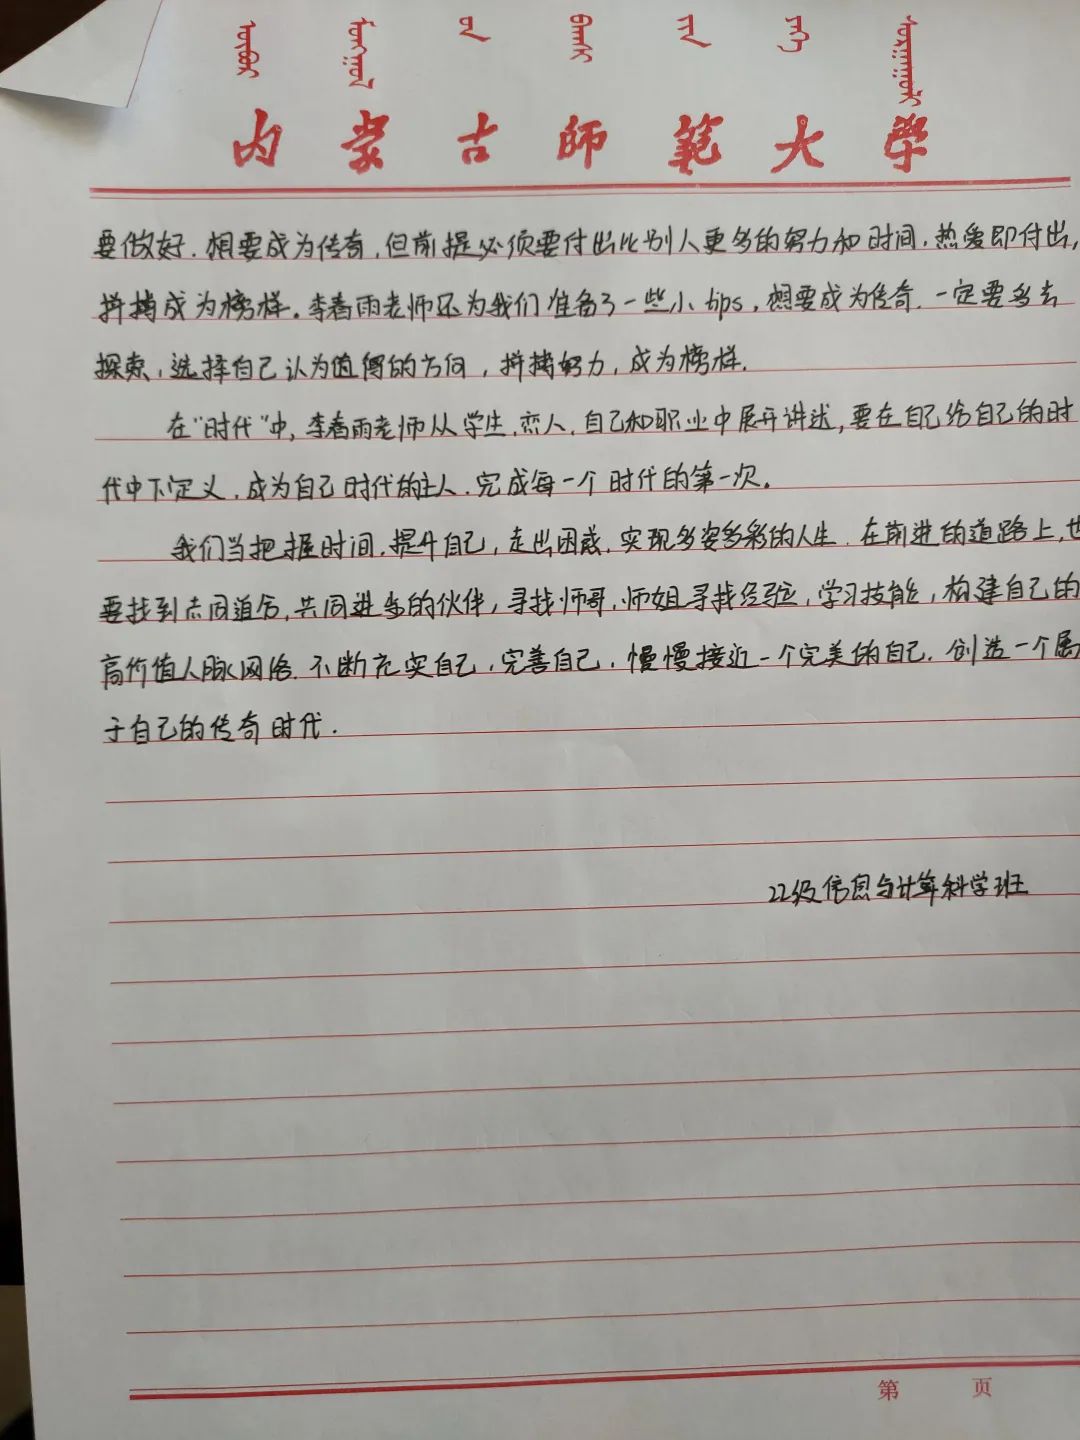 内蒙古师范大学
要做好.想要成为传奇,但前提必须要付出比别人更多的努力和时间.热爱即付出,
拼搏成为榜样。李春雨老师还为我们准备了一些小tips,想要成为传奇.一定要多去
探索,选择自己认为值得的方向,拼搏努力,成为榜样.
在"时代"中,李春雨老师从学生.恋人.自己和职业中展开讲述,要在自己给自己的时
代中下定义.成为自己时代的主人.完成每一个时代的第一次。
我们当把握时间,提升自己,走出困惑.实现多姿多彩的人生.在前进的道路上,也
要找到志同道合,共同进步的伙伴,寻找师哥,师姐寻找经验,学习技能,构建自己的
高价值人脉网络.不断充实自己,完善自己,慢慢接近一个完美的自己.创造一个属
于自己的传奇时代.
22级信息与计算科学班
第 页